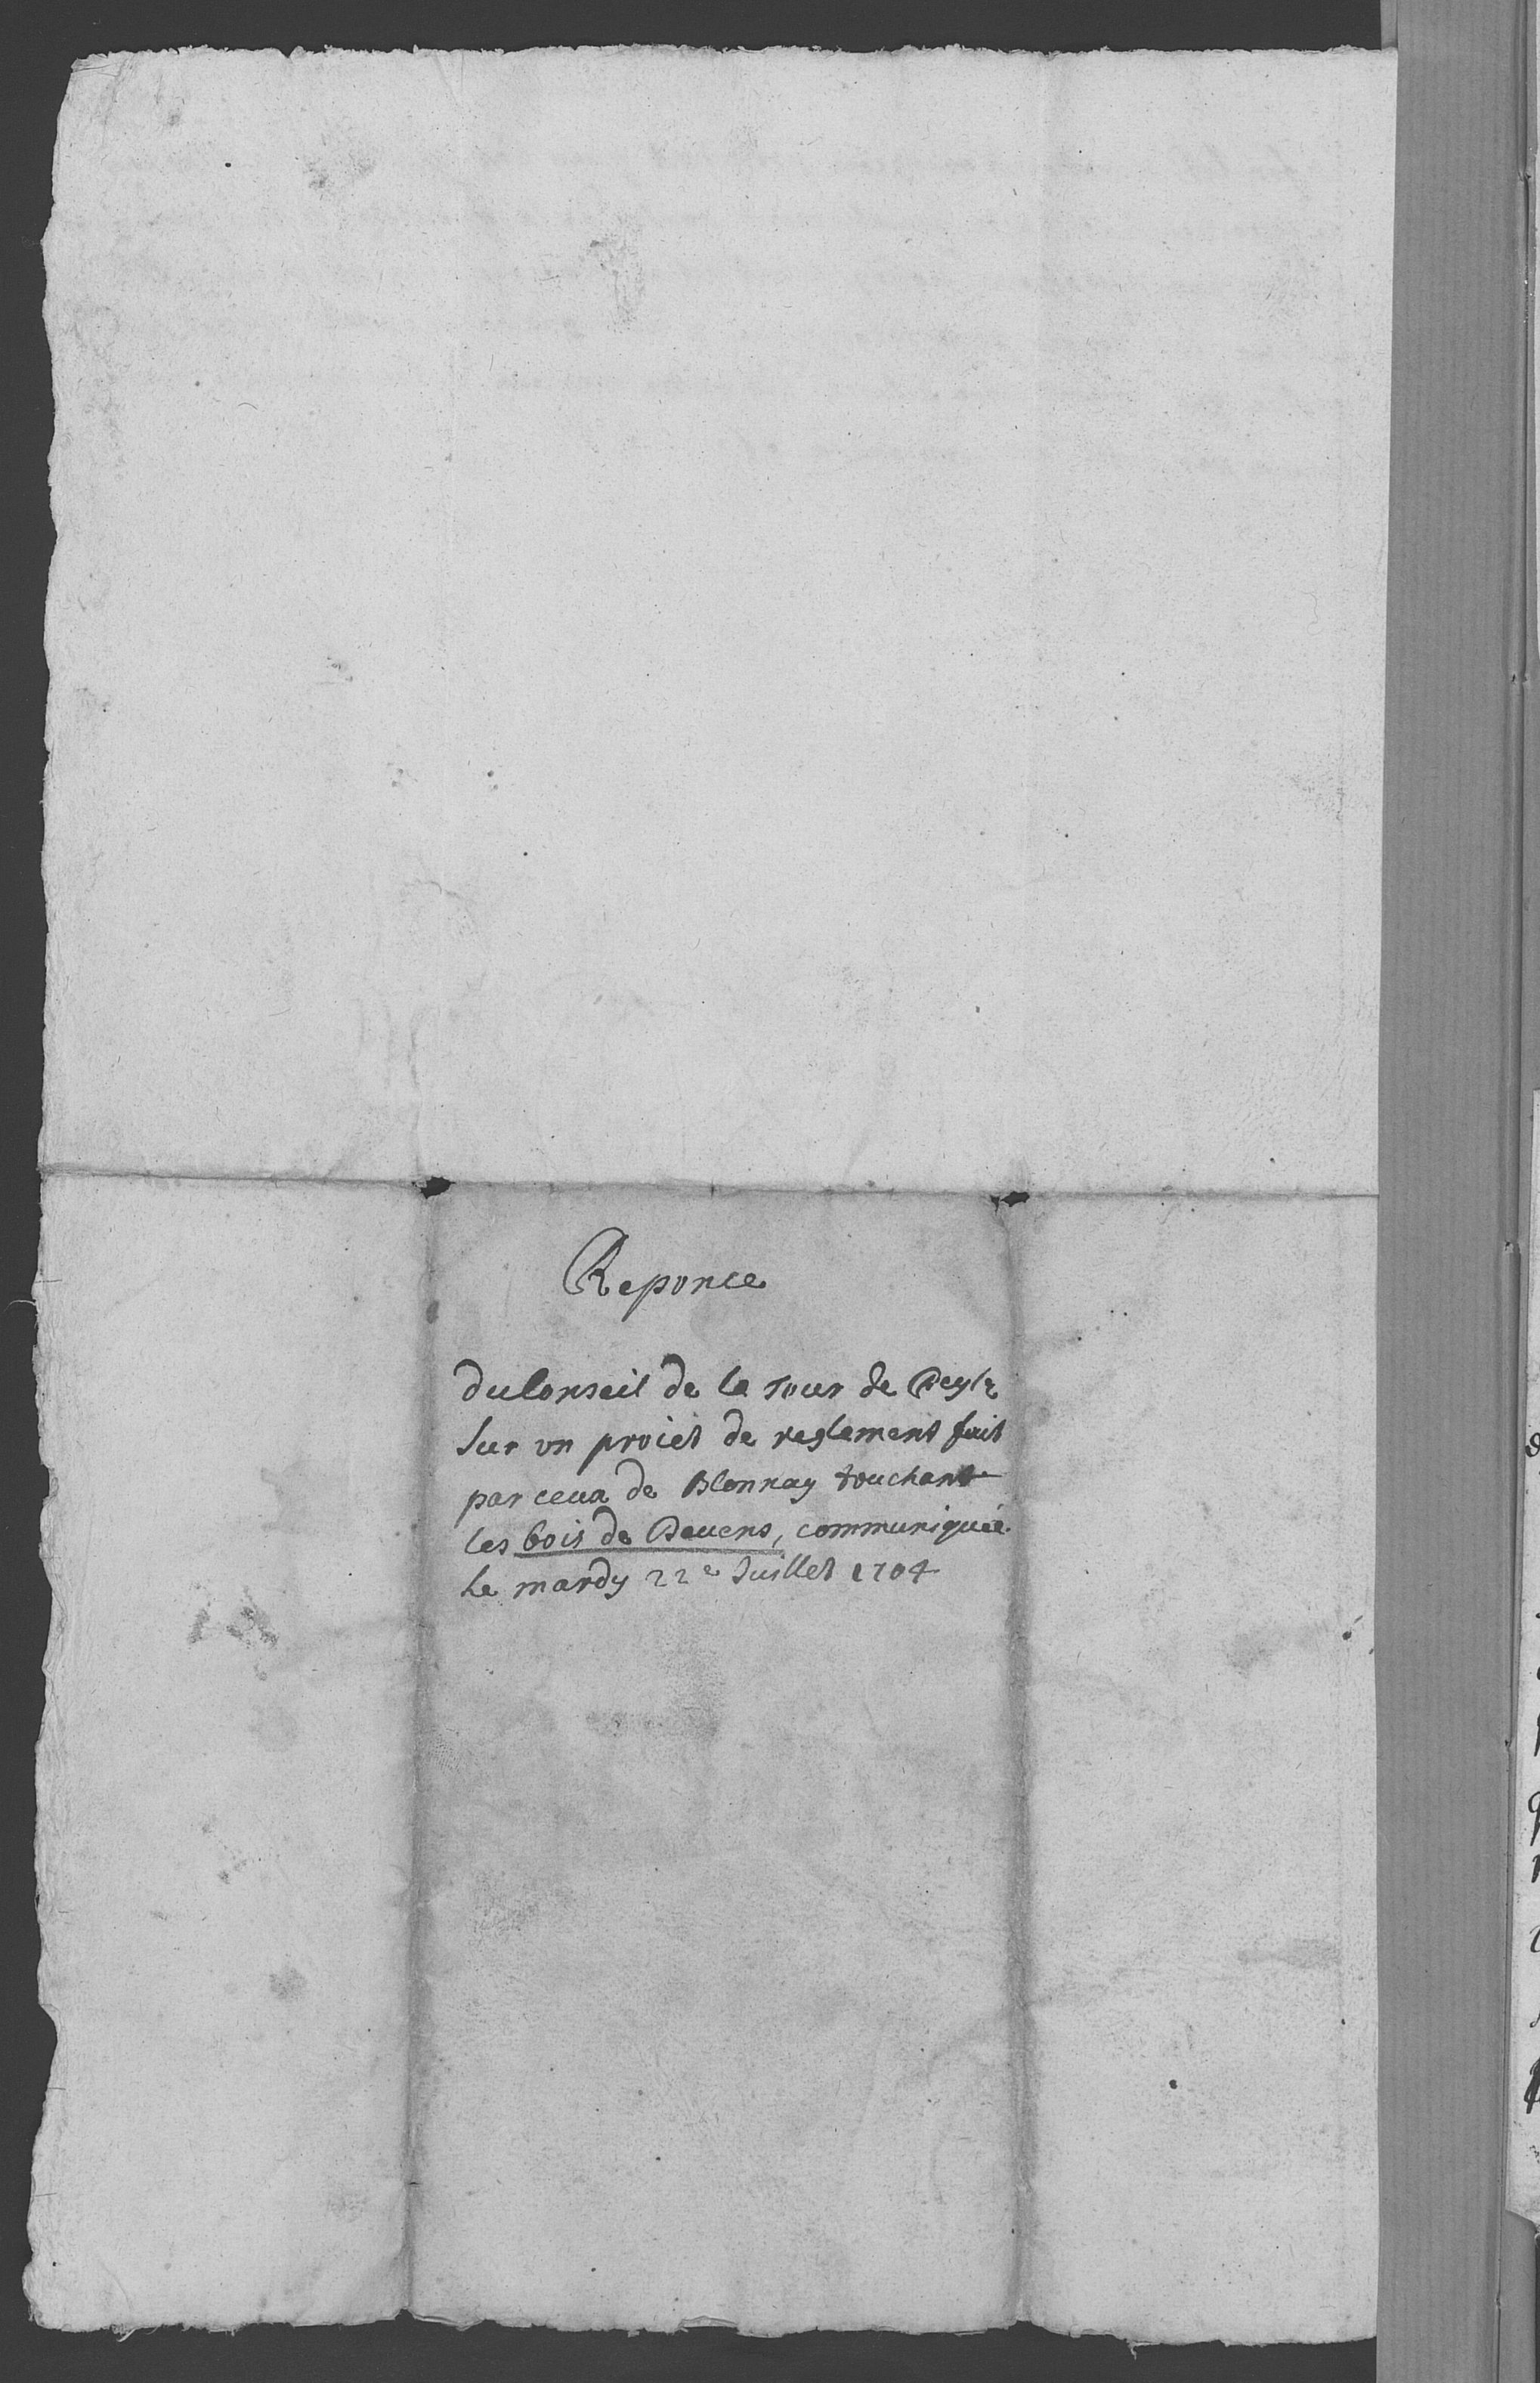 Reponce
du Conseil de la Tour de Peylz
Sur vn proiet de reglement fait
par ceux de Blonnay touchant
les bois de Deuens, communiquée
Le mardy 22e Juillet 1704